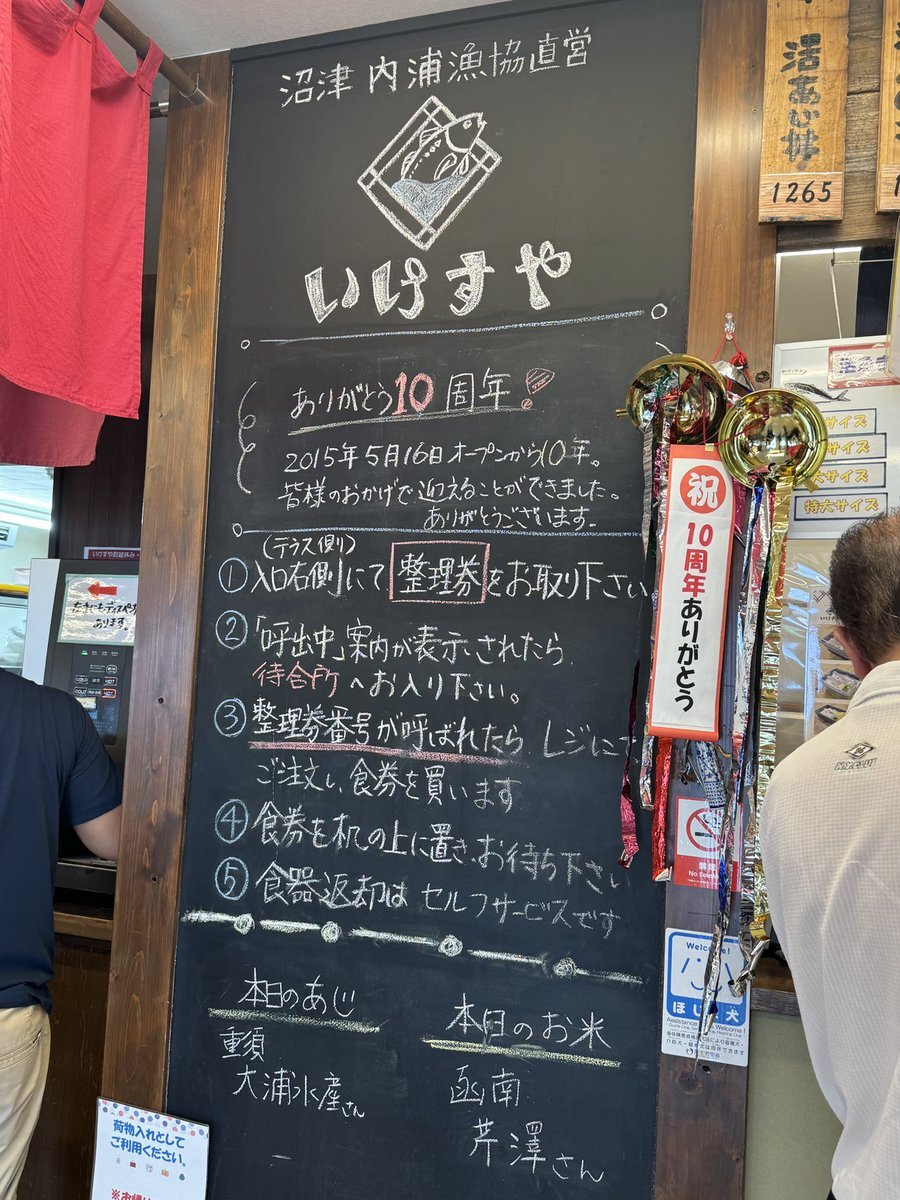 沼津 内浦漁協直営
いけすや
ありがとう10周年
2015年5月16日オープンから10年。
皆様のおかげで迎えることができました。
ありがとうございます。
(テラス側)
① 入口右側にて整理券をお取り下さい
② 「呼出中」案内が表示されたら
待合所へお入り下さい。
③ 整理券番号が呼ばれたら レジにて
ご注文し、食券を買います
④ 食券を机の上に置き、お待ち下さい
⑤ 食器返却は セルフサービスです
本日のあじ
重須
大浦水産さん
本日のお米
函南
芹澤さん
活あじ丼
1265
祝
10周年ありがとう
サイズ
サイズ
大サイズ
特大サイズ
禁煙
No Smoking
Welcome!
ほじょ犬
Assistance Dogs Welcome!
いけすやお昼休み
あります
COLD
HOT
COLD
HOT
荷物入れとして
ご利用ください。